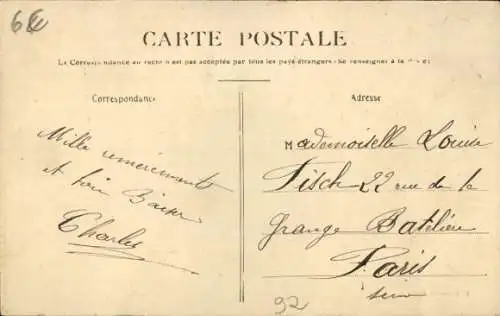 6€
CARTE POSTALE
La Correspondance au recto n'est pas acceptée par tous les pays étrangers (Se renseigner à la
Correspondance
Adresse
Mille remerciements
et bon Baiser
Charles
Mademoiselle Louise
Fisch 22 rue de la
Grange Batelière
Paris
Seine
92